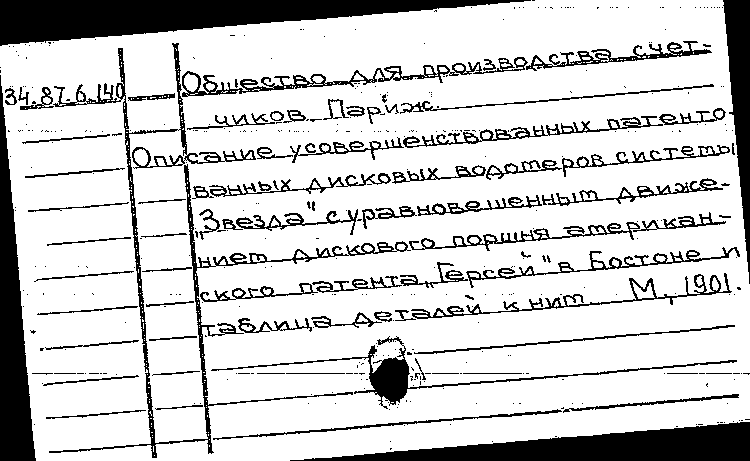 34.87.6.140 Общество для производства счет-
чиков. Париж.
Описание усовершенствованных патенто-
ванных дисковых водомеров системы
„Звезда" с уравновешенным движе-
нием дискового поршня американ-
ского патента „Герсей" в Бостоне и
таблица деталей к ним. М., 1901.